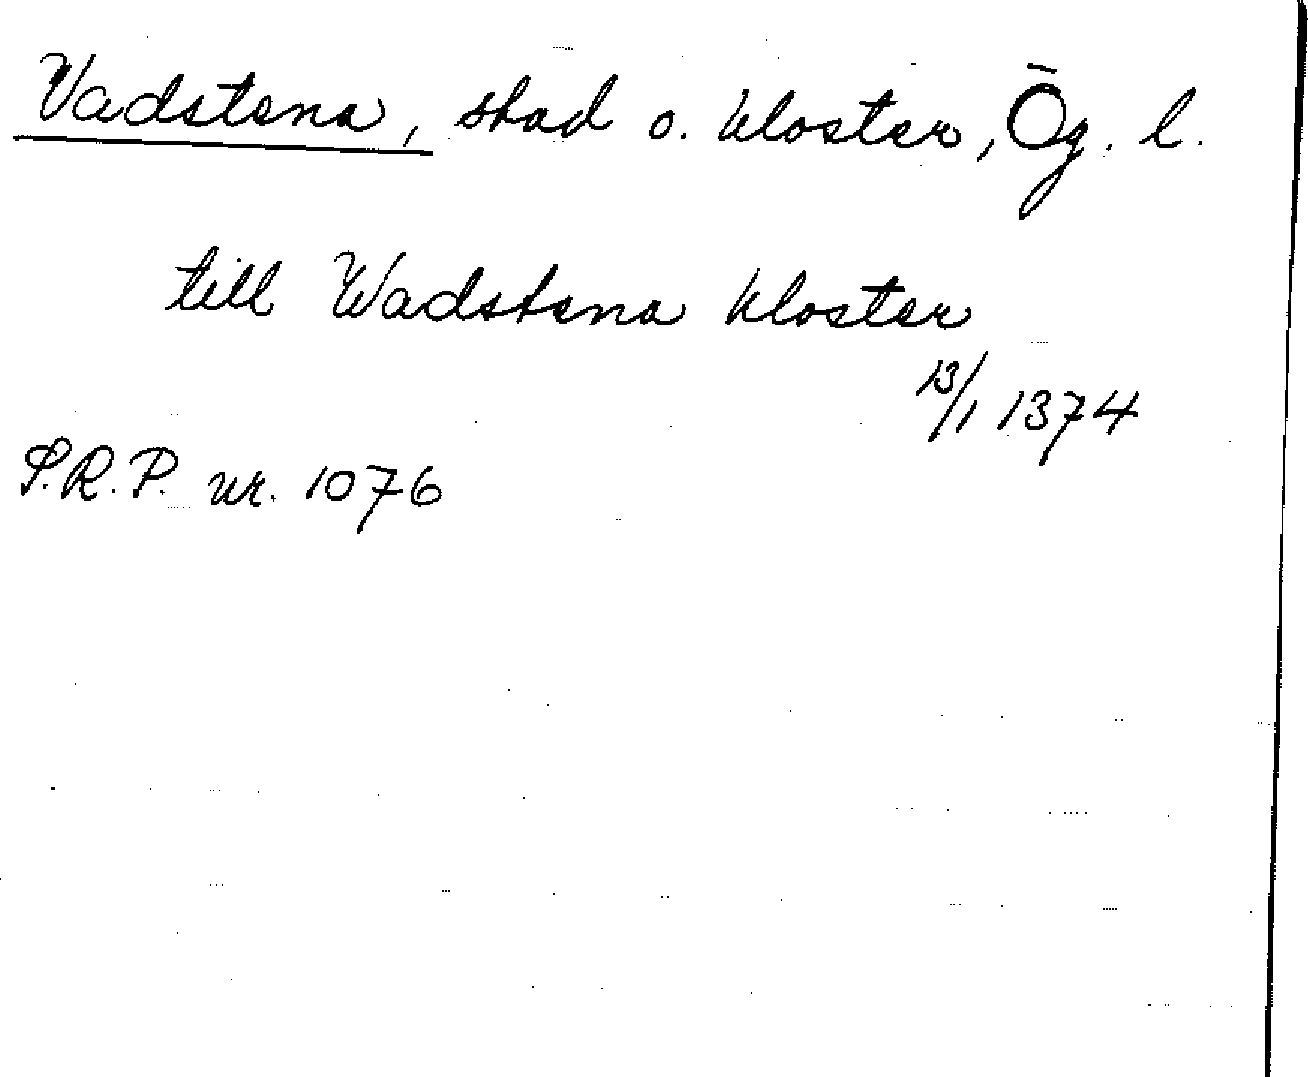 Vadstena, stad o. kloster, Ög. l.
till Wadstena kloster
13/1 1374
S.R.P. nr. 1076